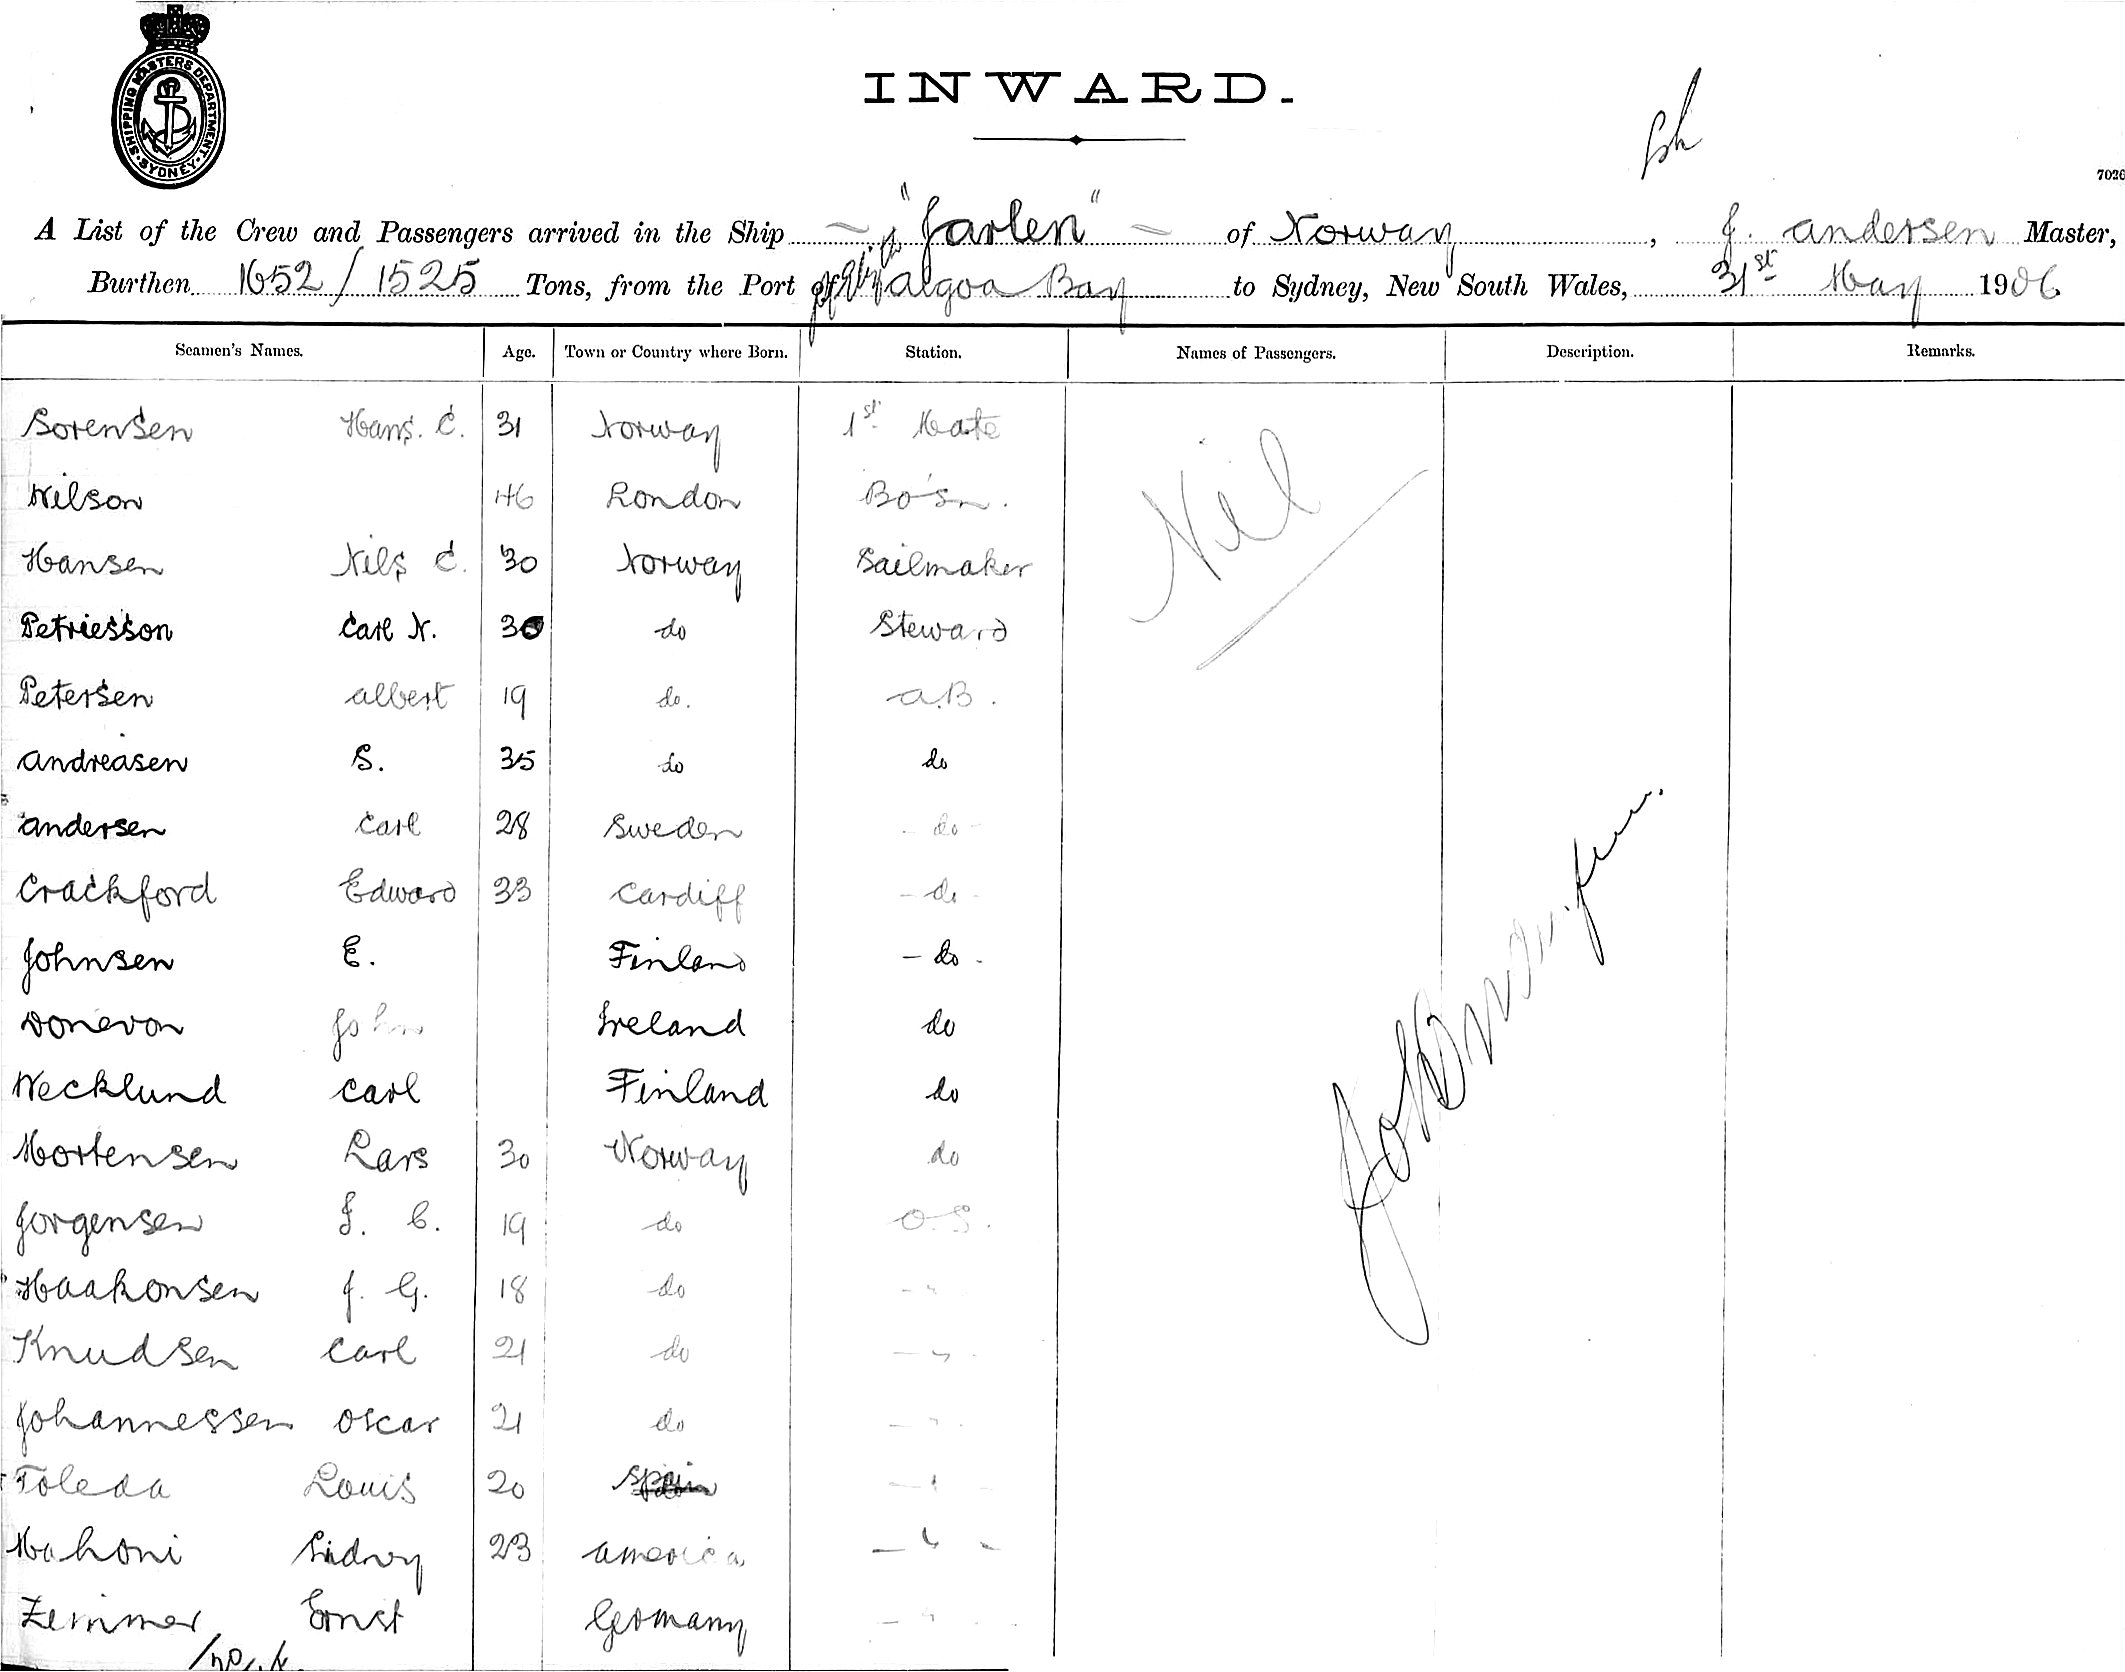 SHIPPING MASTERS DEPARTMENT SYDNEY
INWARD.
7026
A List of the Crew and Passengers arrived in the Ship "Jarlen" of Norway, J. Andersen Master,
Burthen 1652/1525 Tons, from the Port of Algoa Bay to Sydney, New South Wales, 31st May 1906
Seamen's Names. Age. Town or Country where Born. Station. Names of Passengers. Description. Remarks.
Sorensen Hans. C. 31 Norway 1st Mate
Nil
Wilson 46 London Bo'sn.
Hansen Nils C. 30 Norway Sailmaker
Petriesson Carl N. 30 do Steward
Petersen Albert 19 do. A.B.
Andreasen S. 35 do do
Andersen Carl 28 Sweden - do -
Crackford Edward 33 Cardiff - do -
Johnsen E. Finland - do -
Donevon John Ireland do
Wecklund Carl Finland do
Mortensen Lars 30 Norway do
Jorgensen J. C. 19 do O.S.
Haakonsen J. G. 18 do - " -
Knudsen Carl 21 do - " -
Johannessen Oscar 21 do - " -
Toleda Louis 20 Spain - " -
Mahoni Sidney 23 America - " -
Zemmer Ernst Germany - " -